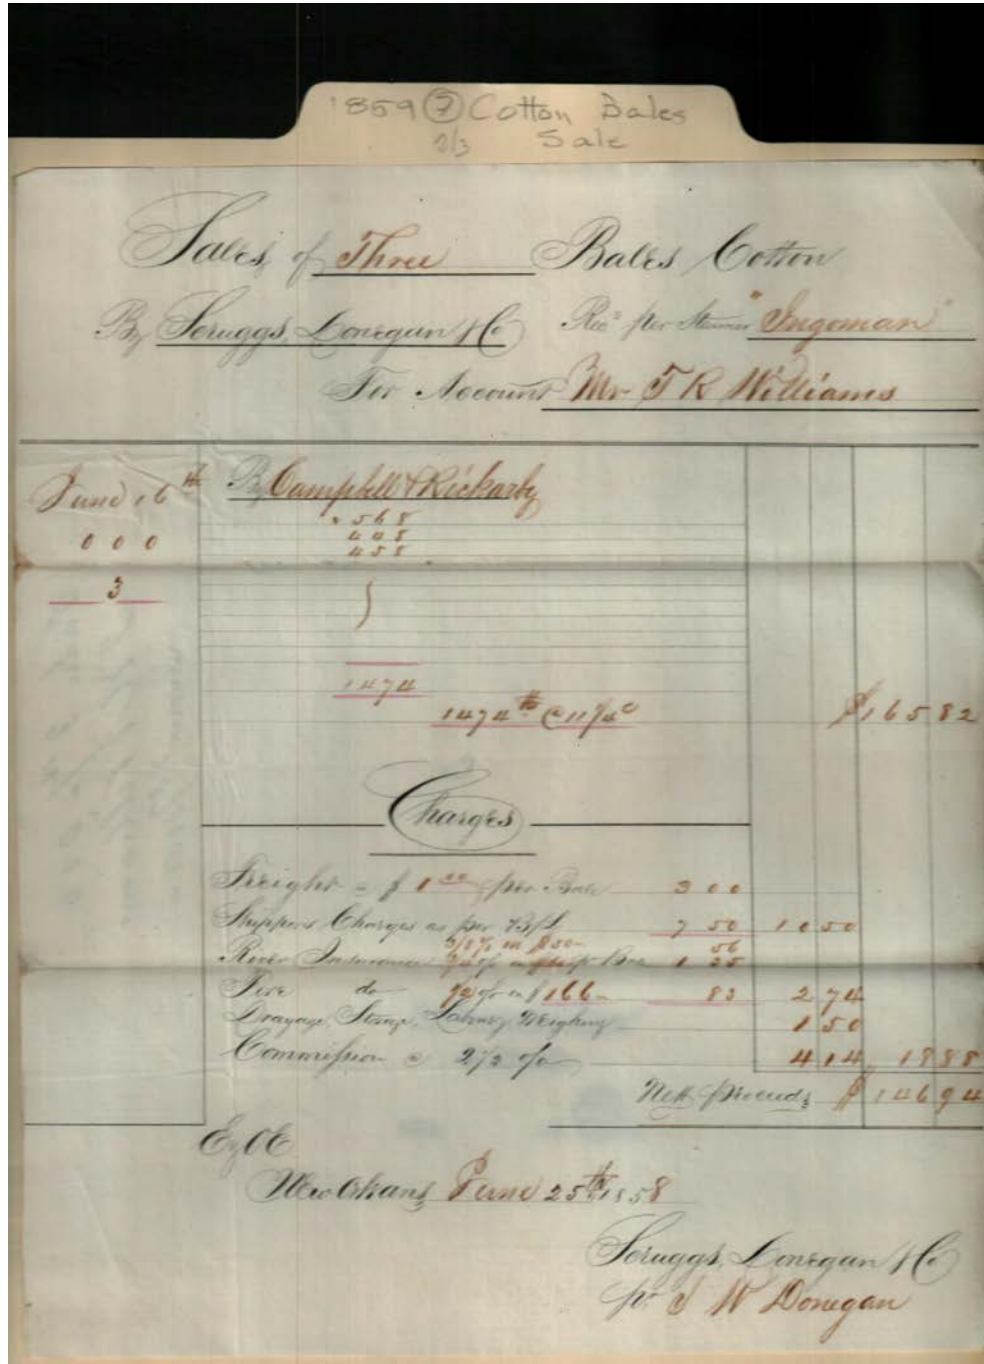 1859 7 Cotton Bales
2/3 Sale
Sales of Three Bales Cotton
By Scruggs, Donegan & Co Rec'd per Steamer "Ingomar"
For Account Mr T R Williams
June 16th By Campbell & Rickarby
568
000 448
458
3
1474
1474 lb @ 11 1/4c $165 82
Charges
Freight @ $ 1 00 per Bale 3 00
Shippers Charges as per B/L 7 50 10 50
5/8 % on $50 56
River Insurance per Bale 1 35
Fire do 1/2 % on $166 83 2 74
Drayage, Storage, Labor, Weighing 1 50
Commission @ 2 1/2 % 4 14 18 88
Nett proceeds $ 146 94
E&OE
New Orleans, June 25th 1858
Scruggs, Donegan & Co
pr J W Donegan